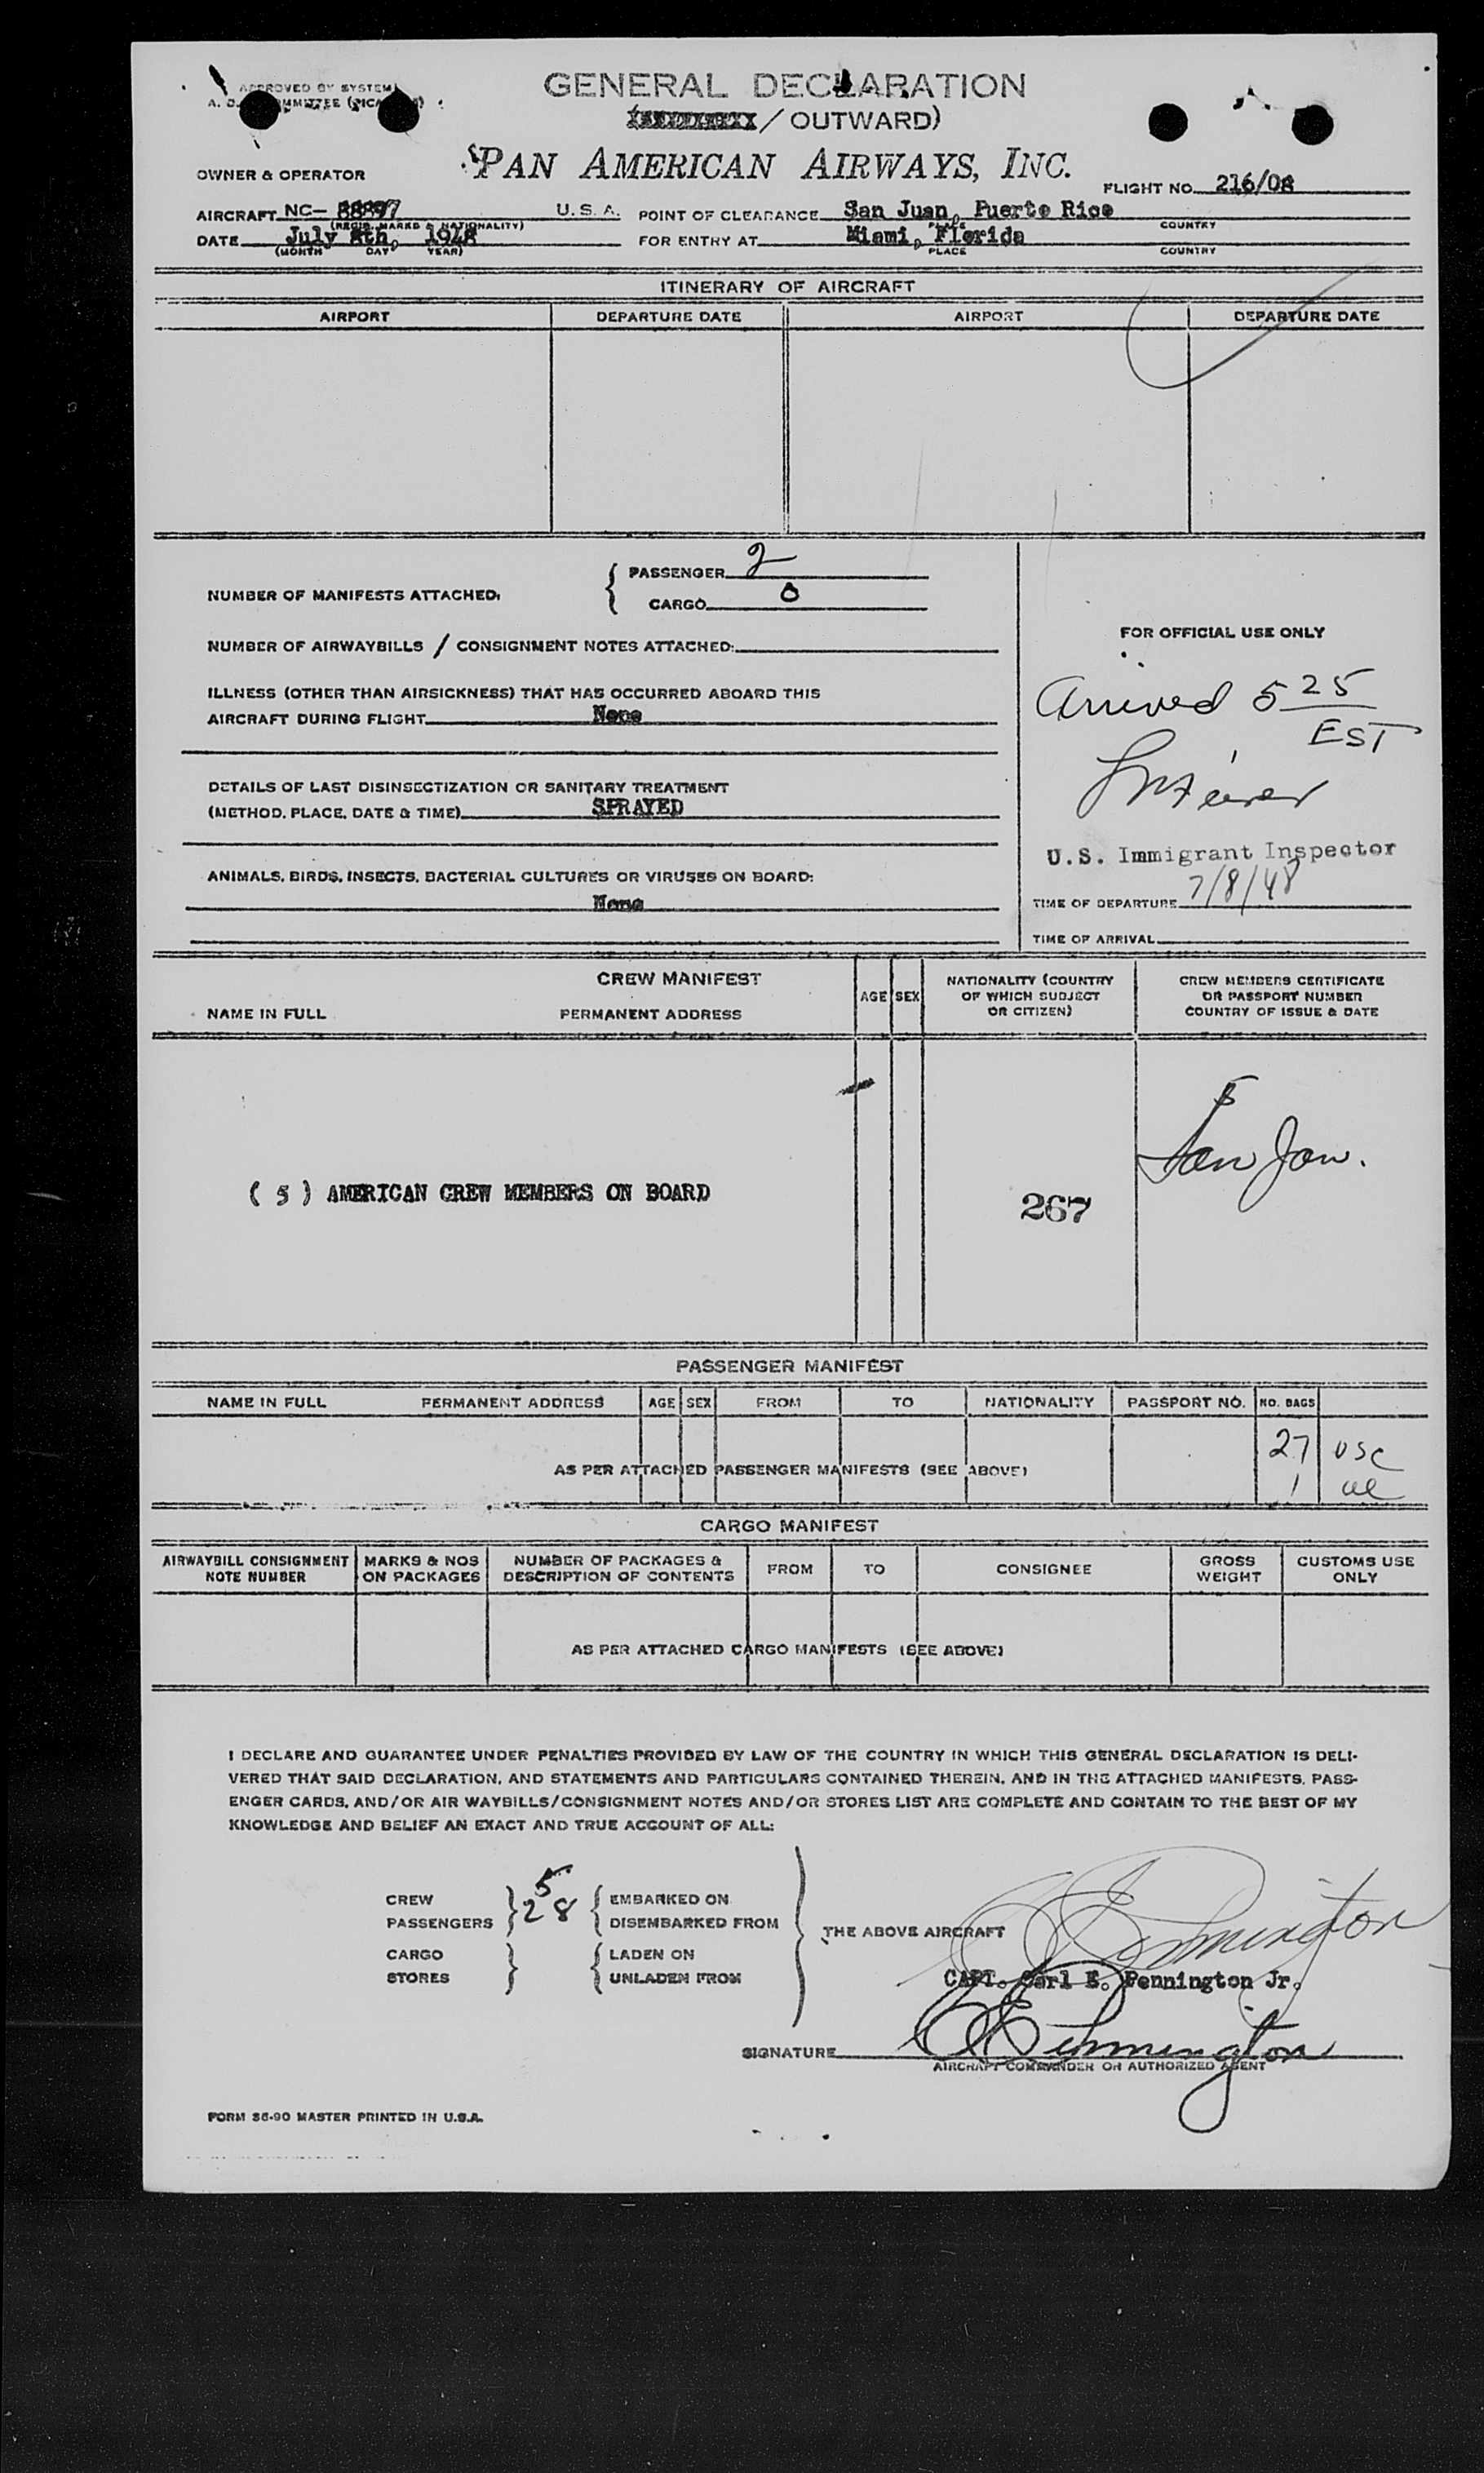 APPROVED BY SYSTEM
GENERAL DECLARATION
/ OUTWARD)
PAN AMERICAN AIRWAYS, INC.
OWNER & OPERATOR
FLIGHT NO. 216/08
AIRCRAFT NC- U. S. A. POINT OF CLEARANCE San Juan, Puerto Rico
(REGIS. MARKS & NATIONALITY) PLACE COUNTRY
DATE July 8th, 1948 FOR ENTRY AT Miami, Florida
(MONTH DAY YEAR) PLACE COUNTRY
ITINERARY OF AIRCRAFT
AIRPORT DEPARTURE DATE AIRPORT DEPARTURE DATE
NUMBER OF MANIFESTS ATTACHED:
PASSENGER 2
CARGO 0
NUMBER OF AIRWAYBILLS / CONSIGNMENT NOTES ATTACHED:
ILLNESS (OTHER THAN AIRSICKNESS) THAT HAS OCCURRED ABOARD THIS
AIRCRAFT DURING FLIGHT None
DETAILS OF LAST DISINSECTIZATION OR SANITARY TREATMENT
(METHOD, PLACE, DATE & TIME) SPRAYED
ANIMALS, BIRDS, INSECTS, BACTERIAL CULTURES OR VIRUSES ON BOARD:
None
FOR OFFICIAL USE ONLY
Arrived 5 25
EST
U.S. Immigrant Inspector
7/8/48
TIME OF DEPARTURE
TIME OF ARRIVAL
CREW MANIFEST
NAME IN FULL PERMANENT ADDRESS
AGE SEX
NATIONALITY (COUNTRY
OF WHICH SUBJECT
OR CITIZEN)
CREW MEMBERS CERTIFICATE
OR PASSPORT NUMBER
COUNTRY OF ISSUE & DATE
San
( 5 ) AMERICAN CREW MEMBERS ON BOARD
267
PASSENGER MANIFEST
NAME IN FULL PERMANENT ADDRESS AGE SEX FROM TO NATIONALITY PASSPORT NO. NO. BAGS
27 USC
AS PER ATTACHED PASSENGER MANIFESTS (SEE ABOVE)
1
CARGO MANIFEST
AIRWAYBILL CONSIGNMENT
NOTE NUMBER
MARKS & NOS
ON PACKAGES
NUMBER OF PACKAGES &
DESCRIPTION OF CONTENTS
FROM TO CONSIGNEE
GROSS
WEIGHT
CUSTOMS USE
ONLY
AS PER ATTACHED CARGO MANIFESTS (SEE ABOVE)
I DECLARE AND GUARANTEE UNDER PENALTIES PROVIDED BY LAW OF THE COUNTRY IN WHICH THIS GENERAL DECLARATION IS DELI-
VERED THAT SAID DECLARATION, AND STATEMENTS AND PARTICULARS CONTAINED THEREIN, AND IN THE ATTACHED MANIFESTS, PASS-
ENGER CARDS, AND/OR AIR WAYBILLS/CONSIGNMENT NOTES AND/OR STORES LIST ARE COMPLETE AND CONTAIN TO THE BEST OF MY
KNOWLEDGE AND BELIEF AN EXACT AND TRUE ACCOUNT OF ALL:
CREW 5 EMBARKED ON
PASSENGERS 28 DISEMBARKED FROM
THE ABOVE AIRCRAFT
CARGO LADEN ON
STORES UNLADEN FROM
CE Pennington
CAPT. Carl E. Pennington Jr.
SIGNATURE CE Pennington
AIRCRAFT COMMANDER OR AUTHORIZED AGENT
FORM 36-90 MASTER PRINTED IN U.S.A.